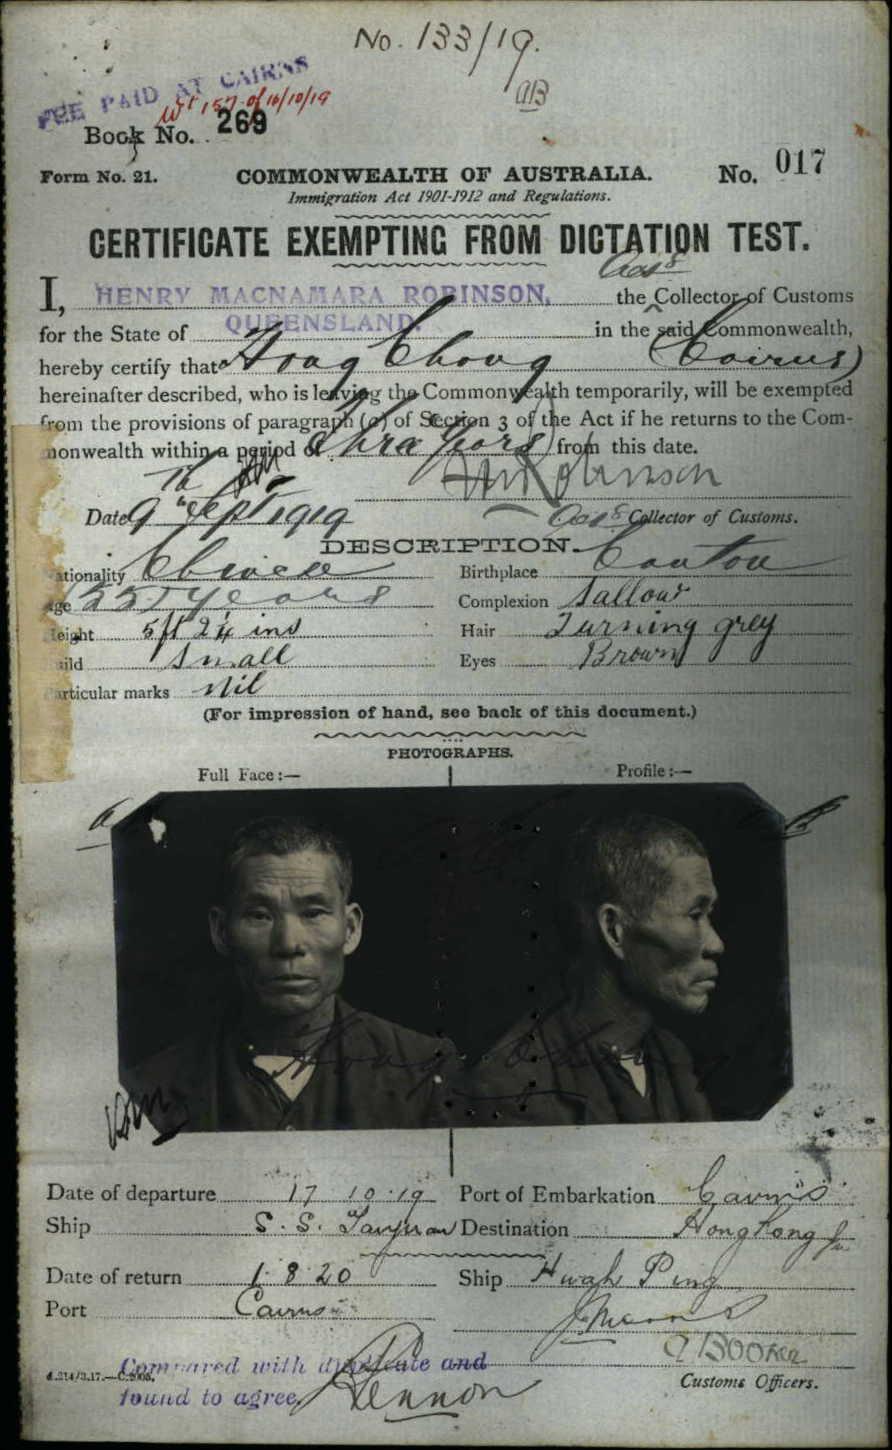 No. 133/19.
FEE PAID AT CAIRNS
Wt 157 of 16/10/19
AB
Book No. 269
Form No. 21.
COMMONWEALTH OF AUSTRALIA.
No. 017
Immigration Act 1901-1912 and Regulations.
CERTIFICATE EXEMPTING FROM DICTATION TEST.
I, HENRY MACNAMARA ROBINSON, the Collector of Customs
for the State of QUEENSLAND. in the said Commonwealth,
hereby certify that Hong Chong (Cairns)
hereinafter described, who is leaving the Commonwealth temporarily, will be exempted
from the provisions of paragraph (a) of Section 3 of the Act if he returns to the Com-
monwealth within a period of Three Years from this date.
HMRobinson
Date 9th Sept 1919
Collector of Customs.
DESCRIPTION.
ationality Chinese Birthplace Canton
age 55 years Complexion Sallow
eight 5ft 2¼ ins Hair Turning grey
uild Small Eyes Brown
articular marks Nil
(For impression of hand, see back of this document.)
PHOTOGRAPHS.
Full Face:— Profile:—
Hong Chong
Date of departure 17 10.19 Port of Embarkation Cairns
Ship S.S. Taiyuan Destination Hong Kong
Date of return 1.8.20 Ship Hwah Ping
Port Cairns
Compared with duplicate and
found to agree.
Lennon
Customs Officers.